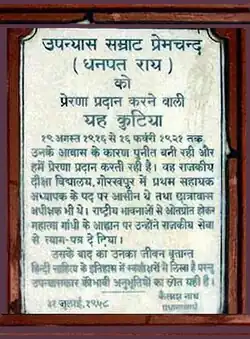 उपन्यास सम्राट प्रेमचन्द
( धनपत राय )
को
प्रेरणा प्रदान करने वाली
यह कुटिया
१९ अगस्त १९१६ से १६ फर्वरी १९२१ तक
उनके आवास के कारण पुनीत बनी रही और
हमें प्रेरणा प्रदान करती रही है। वह राजकीय
दीक्षा विद्यालय, गोरखपुर में प्रथम सहायक
अध्यापक के पद पर आसीन थे तथा छात्रावास
अधीक्षक भी थे। राष्ट्रीय भावनाओं से ओतप्रोत होकर
महात्मा गांधी के आह्वान पर उन्होंने राजकीय सेवा
से त्याग-पत्र दे दिया।
उसके बाद का उनका जीवन वृत्तान्त
हिन्दी साहित्य के इतिहास में स्वर्णाक्षरों में लिखा है परन्तु
उपन्यासकार की भावी अनुभूतियों का स्रोत यही है।
कैलाश नाथ
३१ जुलाई, १९५८